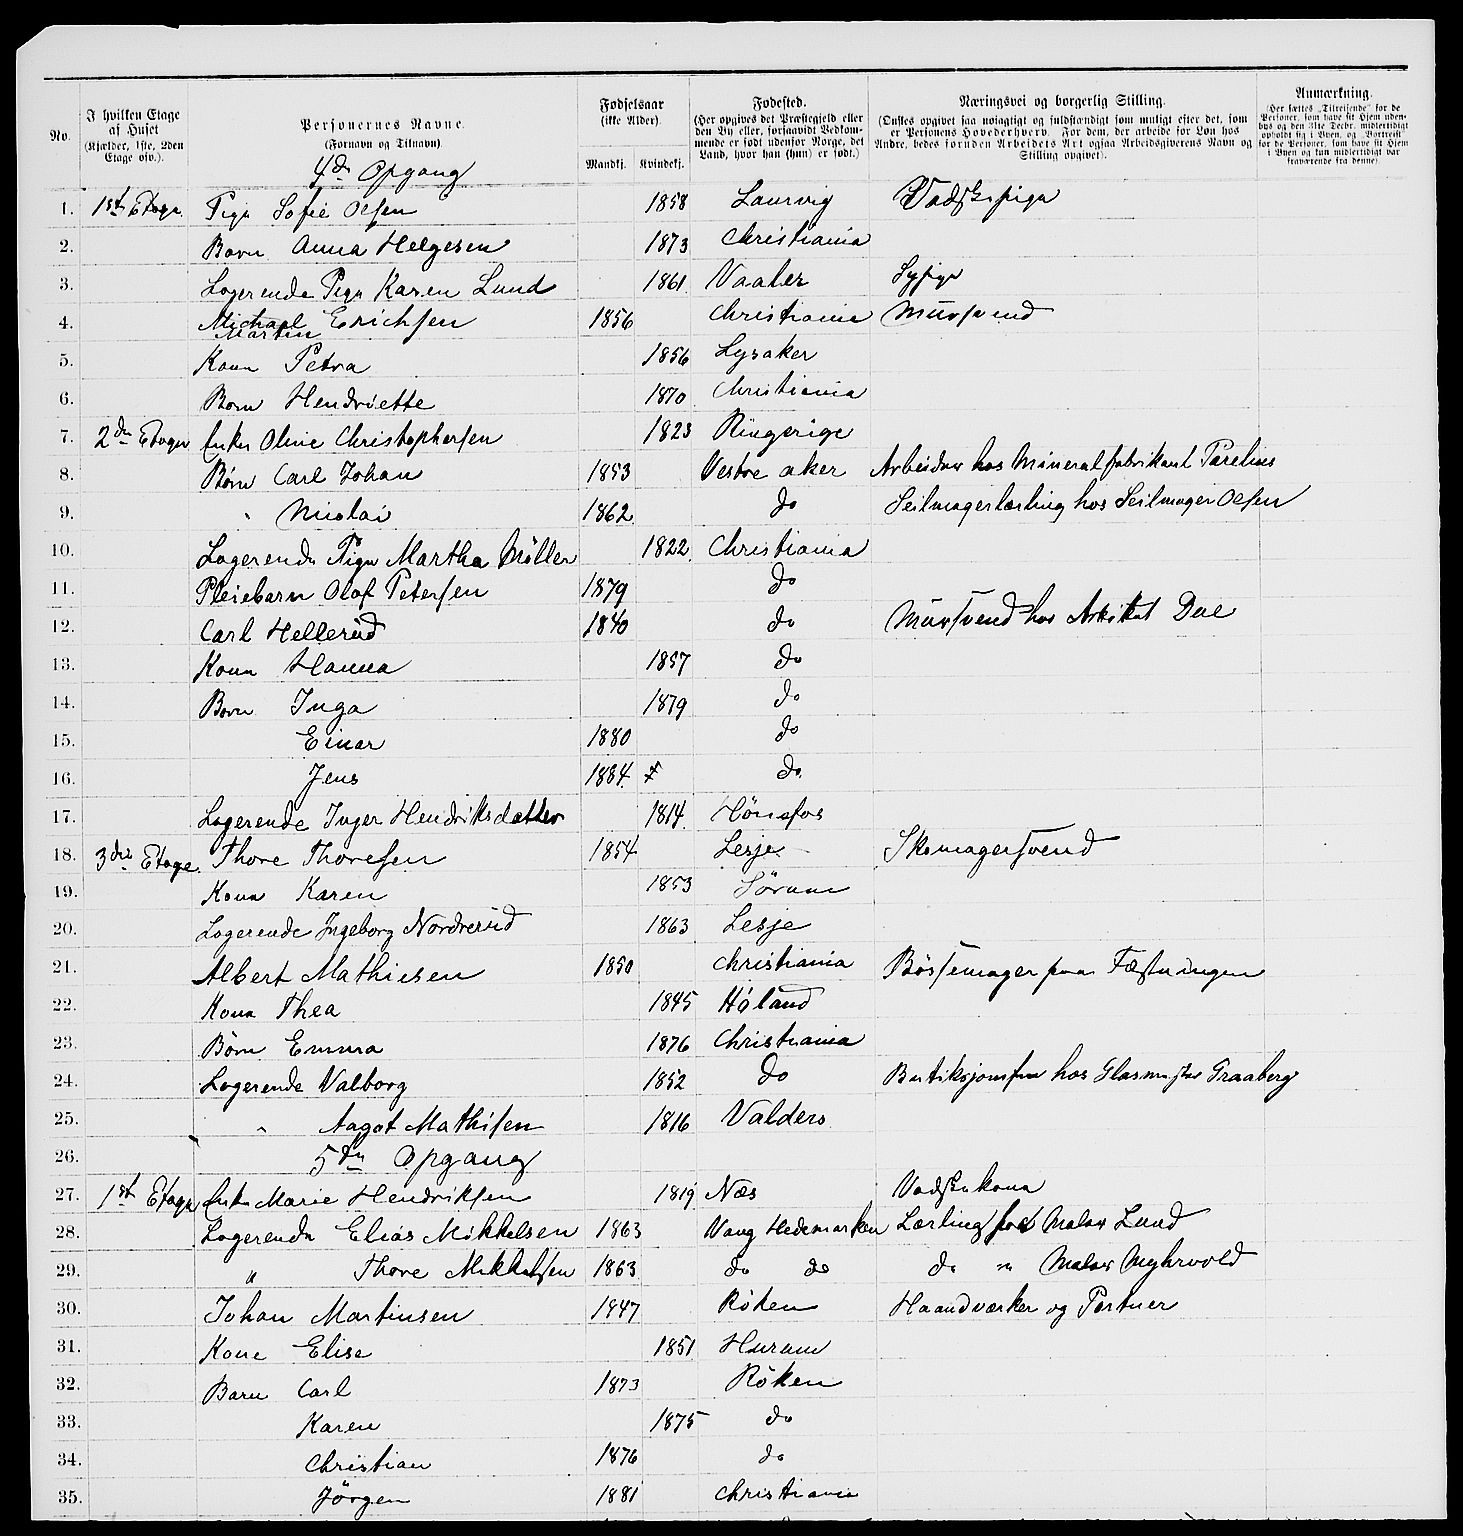 No. | I hvilken Etage af Huset (Kjælder, 1ste, 2den Etage osv.). | Personernes Navne. (Fornavn og Tilnavn). | Fødselsaar (ikke Alder). Mandkj. Kvindekj. | Fødested. (Her opgives det Præstegjeld eller den By eller, forsaavidt Vedkommende er født udenfor Norge, det Land, hvor han (hun) er født.) | Næringsvei og borgerlig Stilling. (Ønskes opgivet saa nøiagtigt og fuldstændigt som muligt efter det, som er Personens Hovederhverv. For dem, der arbeide for Løn hos Andre, bedes foruden Arbeidets Art ogsaa Arbeidsgiverens Navn og Stilling opgivet). | Anmærkning. (Her sættes „Tilreisende“ for de Personer, som have sit Hjem udenbys og den 31te Decbr. midlertidigt opholdt sig i Byen, og „Bortreist“ for de Personer, som have sit Hjem i Byen og kun midlertidigt var fraværende fra denne).
4de Opgang
1. 1st Etage Pige Sofie Olsen 1858 Laurvig Vadskepige
2. Barn Anna Helgesen 1873 Christiania
3. Logerende Pige Karen Lund 1861 Vaaler Sypige
4. Michael Martin Erichsen 1856 Christiania Mursvend
5. Kone Petra 1856 Lysaker
6. Barn Hendriette 1870 Christiania
7. 2den Etage Enke Oline Christophersen 1823 Ringerige
8. Børn Carl Johan 1853 Vestre aker Arbeider hos Mineralfabrikant Parelius
9. " Nicolai 1862 do Seilmagerlærling hos Seilmager Olsen
10. Logerende Pige Martha Møller 1822 Christiania
11. Pleiebarn Olaf Petersen 1879 do
12. Carl Hellerud 1840 do Mursvend hos Arkitekt Due
13. Kone Hanna 1857 do
14. Børn Inga 1879 do
15. Einar 1880 do
16. Jens 1884 do
17. Logerende Inger Hendriksdatter 1814 Hønefos
18. 3die Etage Thore Thoresen 1854 Lesje Skomagersvend
19. Kone Karen 1853 Sørum
20. Logerende Ingeborg Nordrerud 1863 Lesje
21. Albert Mathiesen 1850 Christiania Bøssemager paa Fæstningen
22. Kone Thea 1845 Høland
23. Børn Emma 1876 Christiania
24. Logerende Valborg 1852 Do Butiksjomfru hos Glasmester Graaberg
25. " Aagot Mathisen 1816 Valders
26. 5te Opgang
27. 1st Etage Enke Marie Hendriksen 1819 Næs Vadskekone
28. Logerende Elias Mikkelsen 1863 Vang Hedemarken Lærling hos Maler Lund
29. " Thore Mikkelsen 1863 do do do " Maler Myhrvold
30. Johan Martinsen 1947 Røken Haandværker og Portner
31. Kone Elise 1851 Hurum
32. Barn Carl 1873 Røken
33. Karen 1875 do
34. Christian 1876 do
35. Jørgen 1881 Christiania